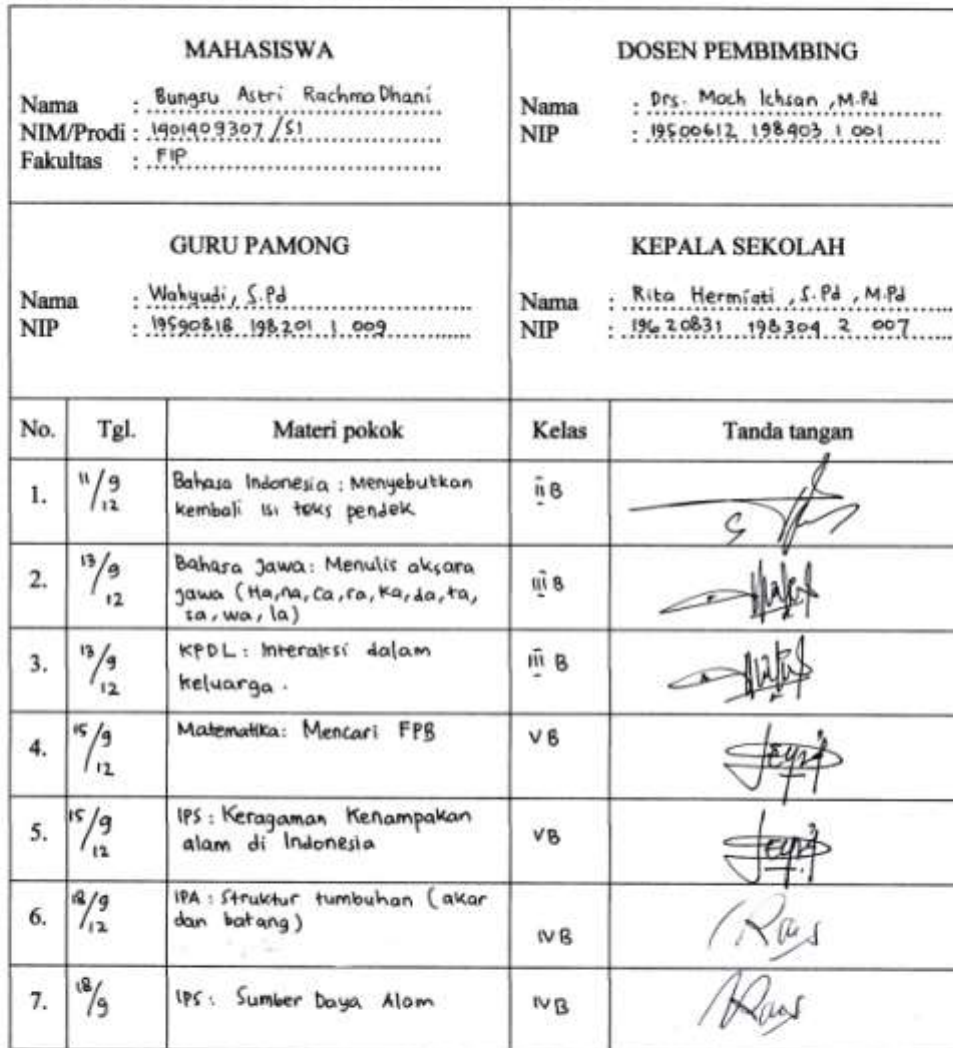 MAHASISWA
Nama : Bungsu Astri RachmaDhani
NIM/Prodi : 1401409307/S1
Fakultas : FIP
DOSEN PEMBIMBING
Nama : Drs. Moch Ichsan, M.Pd
NIP : 19500612 198403 1 001
GURU PAMONG
Nama : Wahyudi, S.Pd
NIP : 19590818 198201 1 009
KEPALA SEKOLAH
Nama : Rita Hermiati, S.Pd, M.Pd
NIP : 19620831 198304 2 007
No. Tgl. Materi pokok Kelas Tanda tangan
1. 11/9 12 Bahasa Indonesia : Menyebutkan II B
kembali isi teks pendek
2. 13/9 12 Bahasa Jawa : Menulis aksara III B
jawa (Ha, na, ca, ra, ka, da, ta,
sa, wa, la)
3. 13/9 12 KPDL : Interaksi dalam III B
keluarga.
4. 15/9 12 Matematika : Mencari FPB V B
5. 15/9 12 IPS : Keragaman Kenampakan V B
alam di Indonesia
6. 18/9 12 IPA : Struktur tumbuhan (akar IV B
dan batang)
7. 18/9 IPS : Sumber Daya Alam IV B